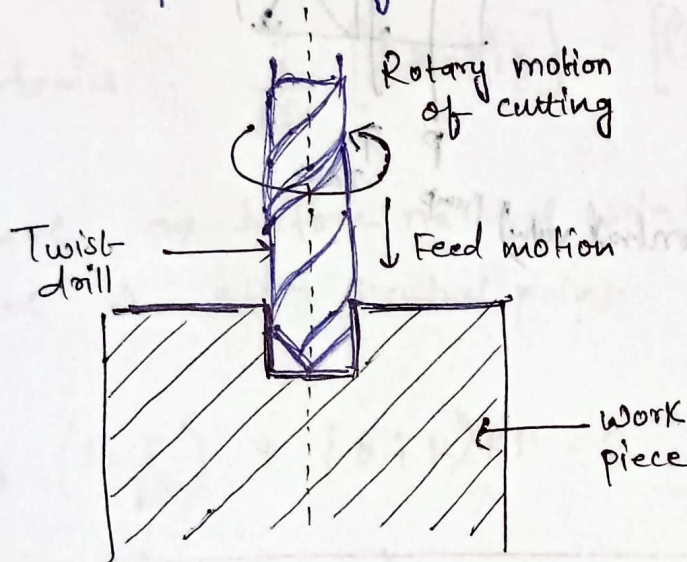 Rotary motion
of cutting
Twist
drill
Feed motion
work
piece